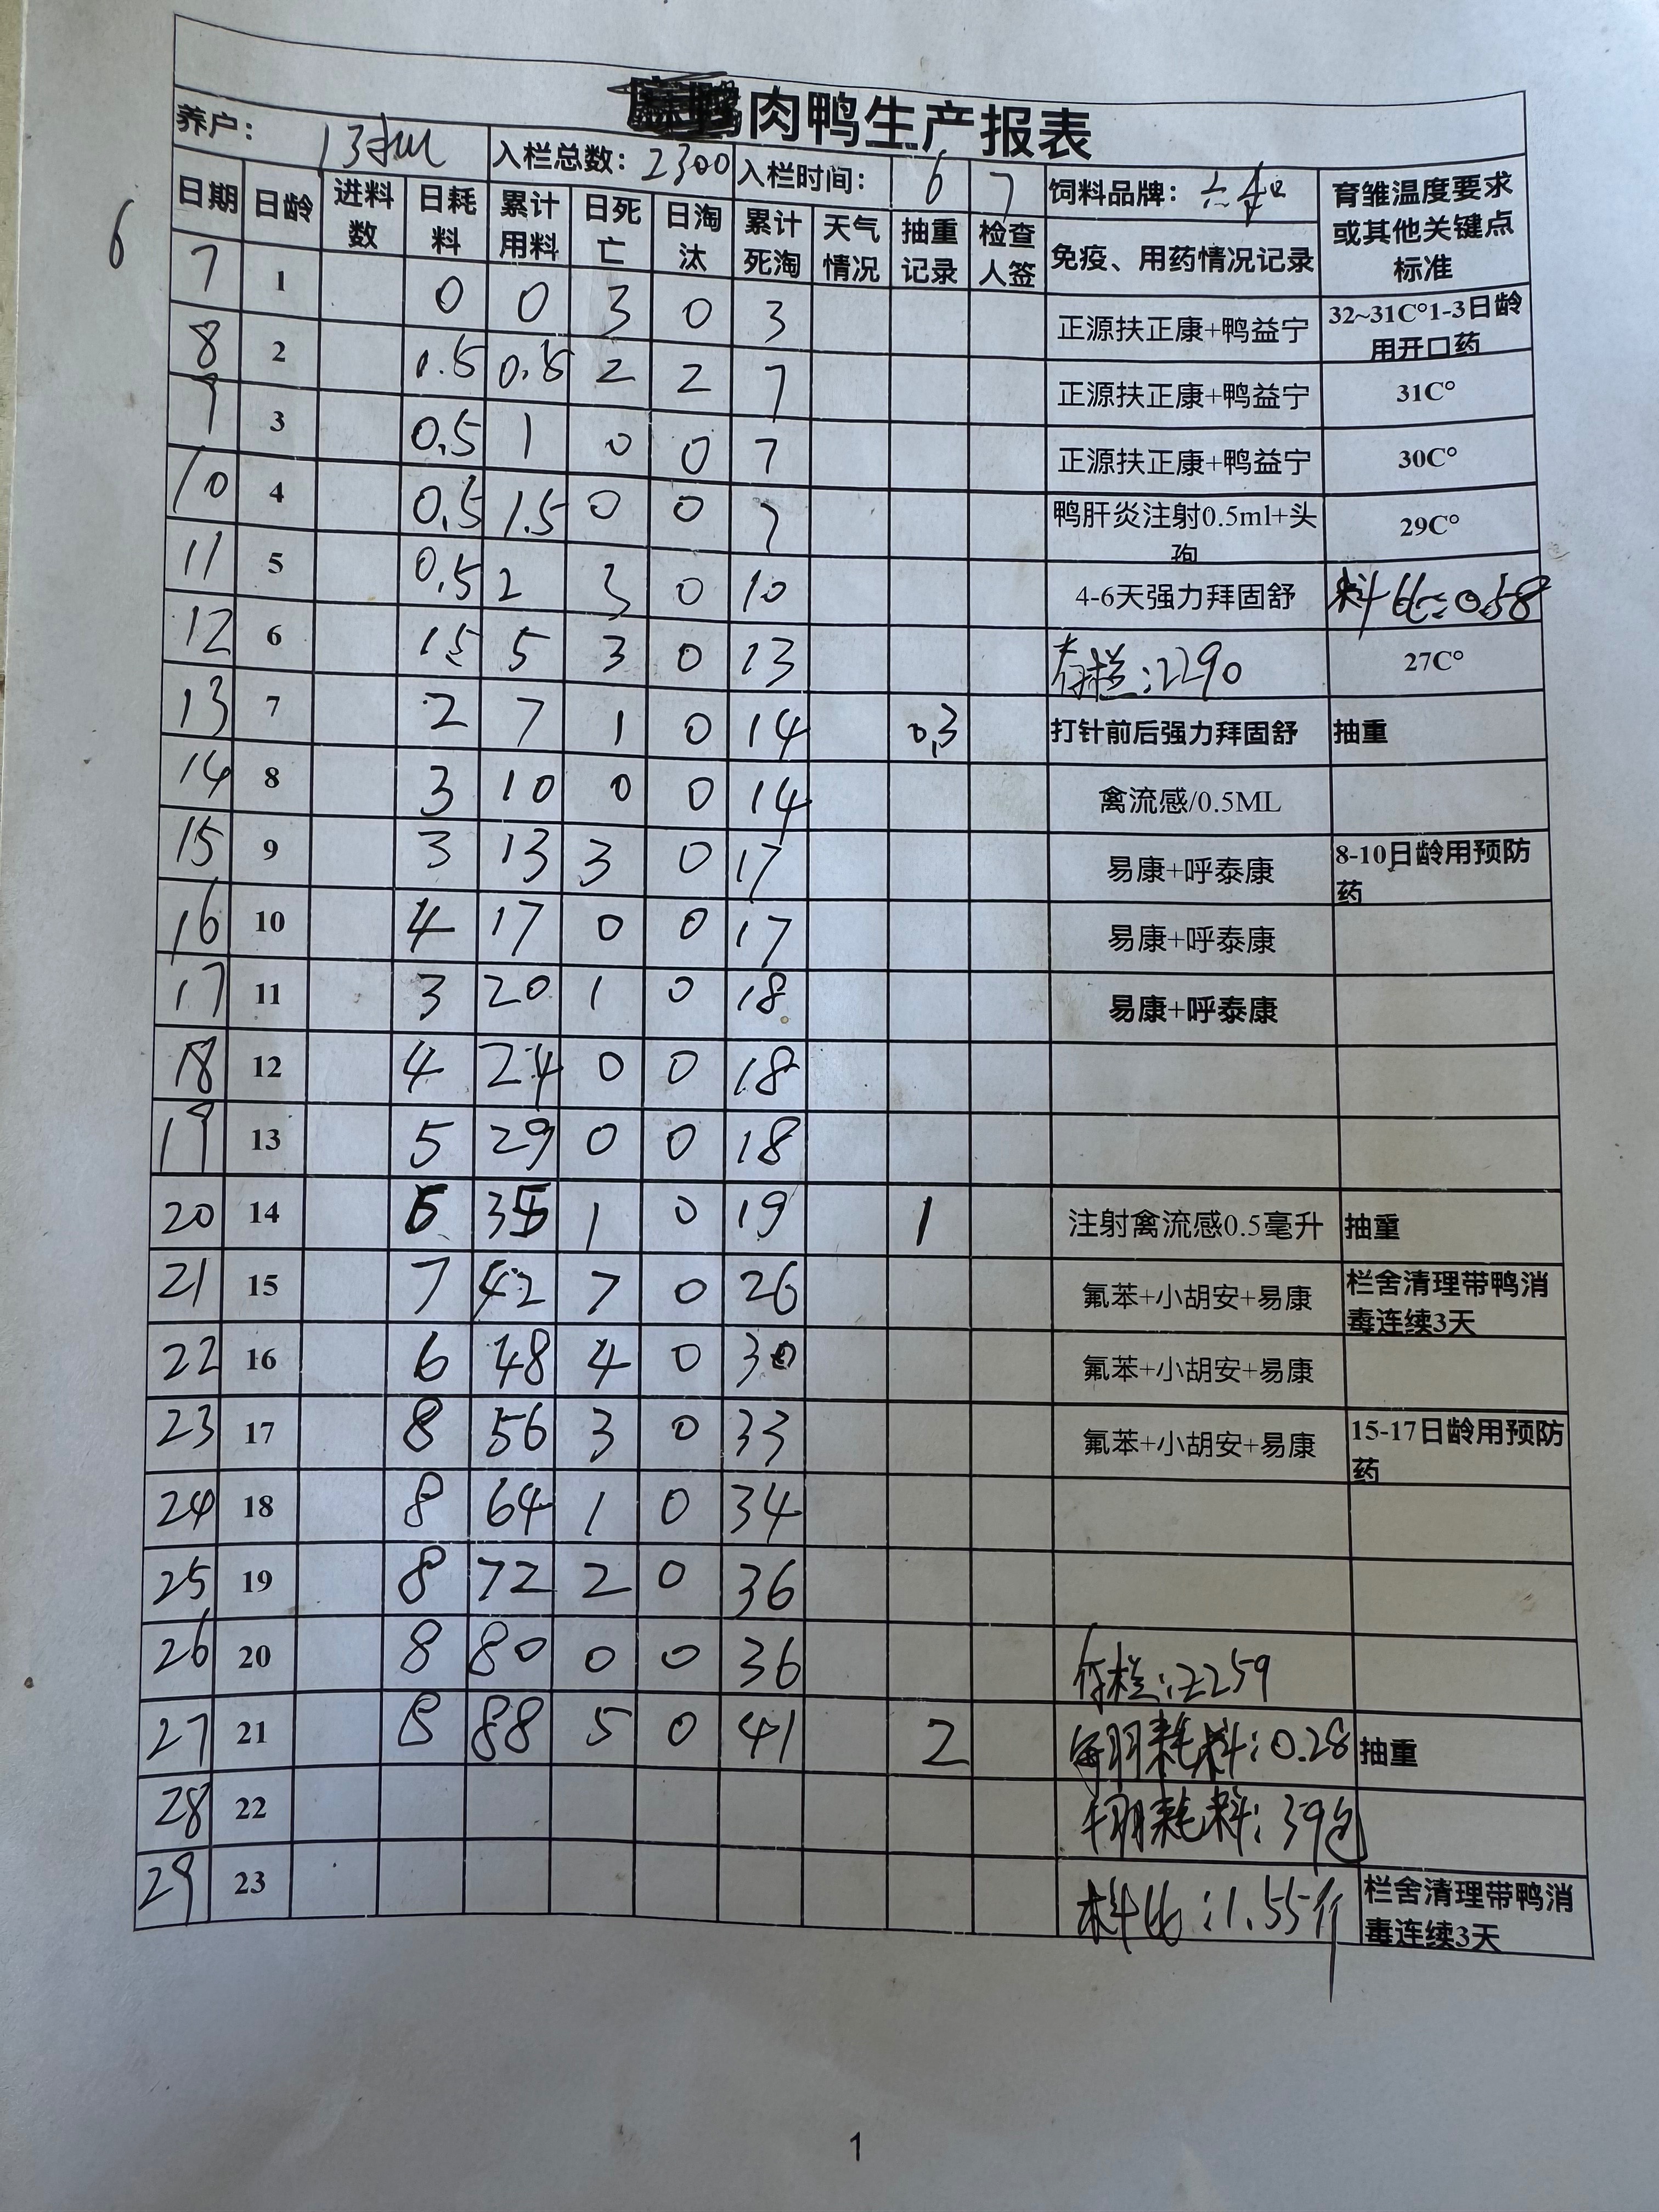 肉鸭生产报表
养户： 入栏总数： 2300 入栏时间： 6 7 饲料品牌： 六和 育雏温度要求或其他关键点标准
6
日期 日龄 进料数 日耗料 累计用料 日死亡 日淘汰 累计死淘 天气情况 抽重记录 检查人签 免疫、用药情况记录
7 1 0 0 3 0 3 正源扶正康+鸭益宁 32~31C°1-3日龄用开口药
8 2 1.5 0.5 2 2 7 正源扶正康+鸭益宁 31C°
9 3 0.5 1 0 0 7 正源扶正康+鸭益宁 30C°
10 4 0.5 1.5 0 0 7 鸭肝炎注射0.5ml+头孢 29C°
11 5 0.5 2 3 0 10 4-6天强力拜固舒 料比=0.58
12 6 15 5 3 0 13 存栏:2290 27C°
13 7 2 7 1 0 14 0.3 打针前后强力拜固舒 抽重
14 8 3 10 0 0 14 禽流感/0.5ML
15 9 3 13 3 0 17 易康+呼泰康 8-10日龄用预防药
16 10 4 17 0 0 17 易康+呼泰康
17 11 3 20 1 0 18 易康+呼泰康
18 12 4 24 0 0 18
19 13 5 29 0 0 18
20 14 6 35 1 0 19 1 注射禽流感0.5毫升 抽重
21 15 7 42 7 0 26 氟苯+小胡安+易康 栏舍清理带鸭消毒连续3天
22 16 6 48 4 0 30 氟苯+小胡安+易康
23 17 8 56 3 0 33 氟苯+小胡安+易康 15-17日龄用预防药
24 18 8 64 1 0 34
25 19 8 72 2 0 36
26 20 8 80 0 0 36 存栏:2259
27 21 8 88 5 0 41 2 每羽耗料:0.28 抽重
28 22 千羽耗料:39包
29 23 料比:1.55斤 栏舍清理带鸭消毒连续3天
1